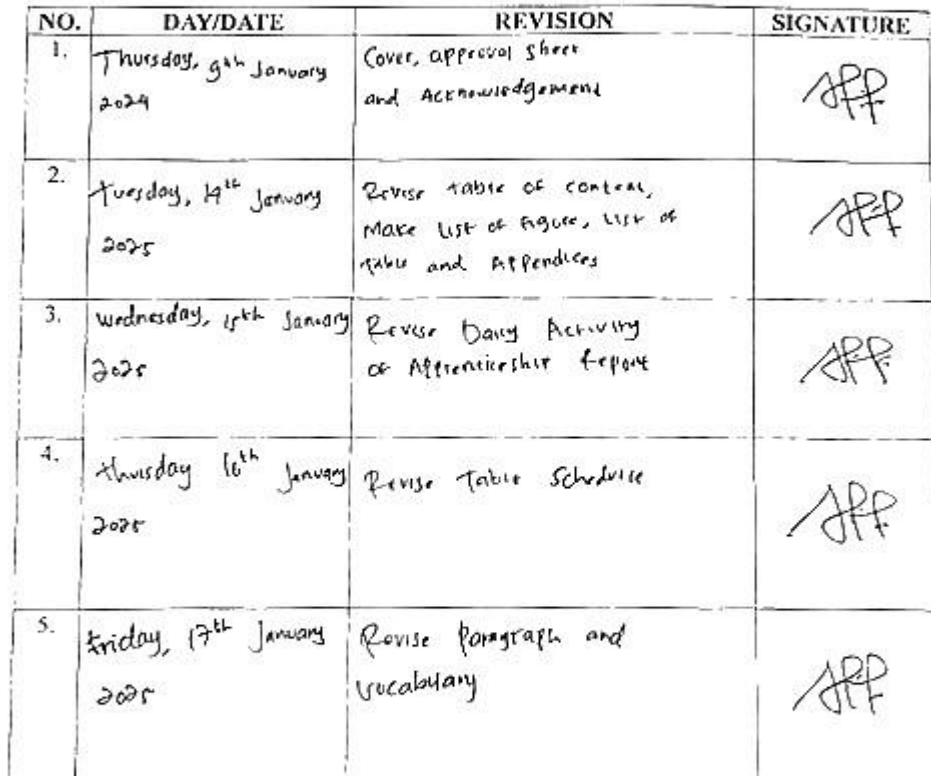 NO. DAY/DATE REVISION SIGNATURE
1. Thursday, 9th January Cover, approval sheet
2024 and Acknowledgement
2. Tuesday, 14th January Revise table of content,
2025 Make List of Figure, List of
Table and Appendices
3. Wednesday, 15th January Revise Daily Activity
2025 of Apprenticeship Report
4. Thursday 16th January Revise Table Schedule
2025
5. Friday, 17th January Revise Paragraph and
2025 Vocabulary